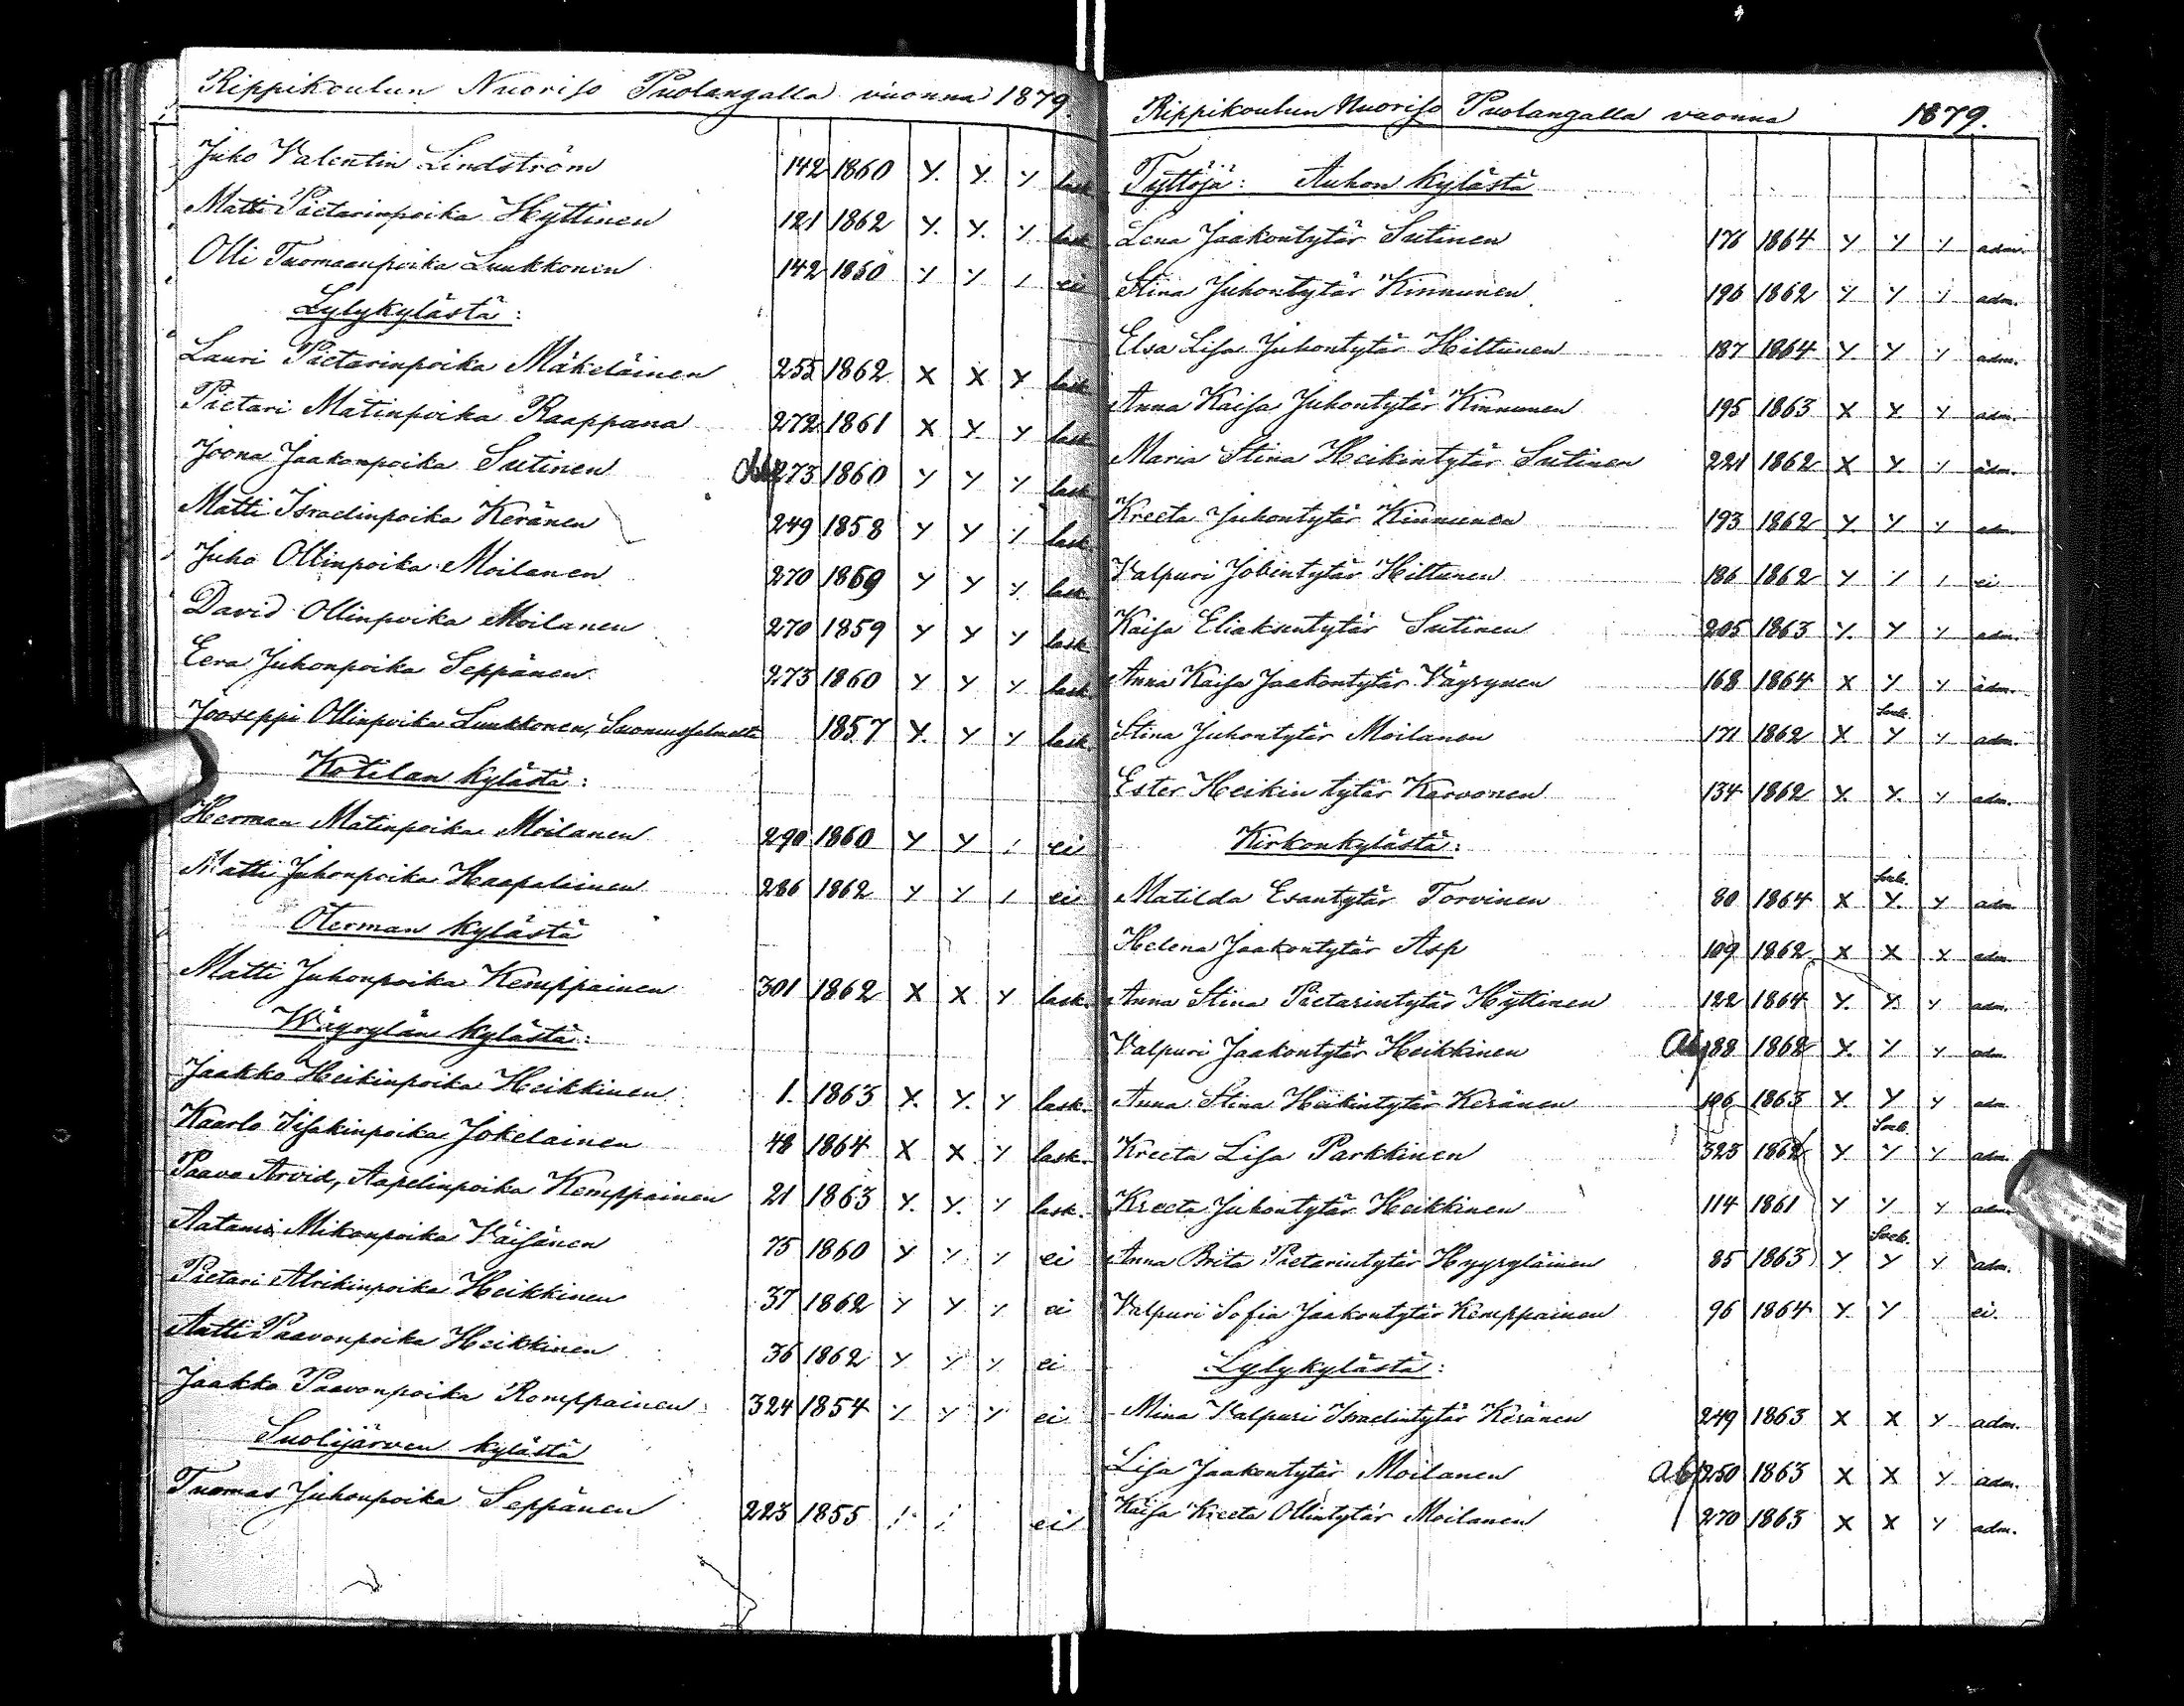 Rippikoulun Nuoriso Puolangalla vuonna 1879.
Juho Valentin Lindström 142 1860 Y. Y. Y lask.
Matti Pietarinpoika Hyttinen 121 1862 Y. Y. Y lask.
Olli Tuomaanpoika Luukkonen 142 1850 Y Y / ei
Lylykylästä:
Lauri Pietarinpoika Mäkeläinen 255 1862 X X Y lask.
Pietari Matinpoika Raappana 272 1861 X Y. Y lask.
Joona Jaakonpoika Sutinen 273 1860 Y Y Y lask.
Matti Israelinpoika Keränen 249 1858 Y Y Y lask.
Juho Ollinpoika Moilanen 270 1869 Y Y Y lask.
David Ollinpoika Moilanen 270 1859 Y Y Y lask.
Eera Juhonpoika Seppänen 273 1860 Y Y Y lask.
Jooseppi Ollinpoika Luukkonen, Suomusjalmelta 1857 Y. Y Y lask.
Kotilan kylästä:
Herman Matinpoika Moilanen 290 1860 Y Y / ei
Matti Juhonpoika Haapalainen 286 1862 Y Y / ei
Oterman kylästä
Matti Juhonpoika Kemppainen 301 1862 X X Y lask.
Wäyrylän kylästä:
Jaakko Heikinpoika Heikkinen 1. 1863 Y. Y. Y lask.
Kaarlo Iisakinpoika Jokelainen 48 1864 X X Y lask.
Paavo Arvid, Aapelinpoika Kemppainen 21 1863 Y. Y. Y lask.
Aatami Mikonpoika Väisänen 75 1860 Y Y Y ei
Pietari Alrikinpoika Heikkinen 37 1862 Y Y Y ei
Antti Paavonpoika Heikkinen 36 1862 Y Y Y ei
Jaakko Paavonpoika Romppainen 324 1854 Y Y Y ei
Suolijärven kylästä
Tuomas Juhonpoika Seppänen 223 1855 / / ei
Rippikoulun Nuoriso Puolangalla vuonna 1879.
Tyttöjä: Auhon kylästä
Lena Jaakontytär Sutinen 176 1864 Y Y Y adm.
Stina Juhontytär Kinnunen 196 1862 Y Y Y adm.
Elsa Lisa Juhontytär Hiltunen 187 1864 Y. Y Y adm.
Anna Kaisa Juhontytär Kinnunen 195 1863 X Y. Y adm.
Maria Stina Heikintytär Sutinen 221 1862 X Y Y adm.
Kreeta Juhontytär Kinnunen 193 1862 Y. Y Y adm.
Valpuri Jobintytär Hiltunen 186 1862 Y Y / ei
Kaisa Eliaksentytär Sutinen 205 1863 Y. Y Y adm.
Anna Kaisa Jaakontytär Väyrynen 168 1864 X Y Y adm.
Stina Juhontytär Moilanen 171 1862 X. Y Y adm.
Ester Heikintytär Karvonen 134 1862 Y. Y. Y adm.
Kirkonkylästä:
Matilda Esantytär Torvinen 80 1864 X Y. Y adm.
Helena Jaakontytär Asp 109 1862 X X X adm.
Anna Stina Pietarintytär Hyttinen 122 1864 Y. Y. Y adm.
Valpuri Jaakontytär Heikkinen 88 1862 Y. Y Y adm.
Anna Stina Heikintytär Keränen 106 1863 Y. Y Y adm.
Kreeta Lisa Parkkinen 323 1862 Y Y Y adm.
Kreeta Juhontytär Heikkinen 114 1861 Y Y Y adm.
Anna Brita Pietarintytär Hyyryläinen 85 1863 Y. Y Y adm.
Valpuri Sofia Jaakontytär Kemppainen 96 1864 Y. Y ei.
Lylykylästä:
Mina Valpuri Israelintytär Keränen 249 1863 X X Y adm.
Lisa Jaakontytär Moilanen 250 1863 X X Y adm.
Kaisa Kreeta Ollintytär Moilanen 270 1863 X X Y adm.